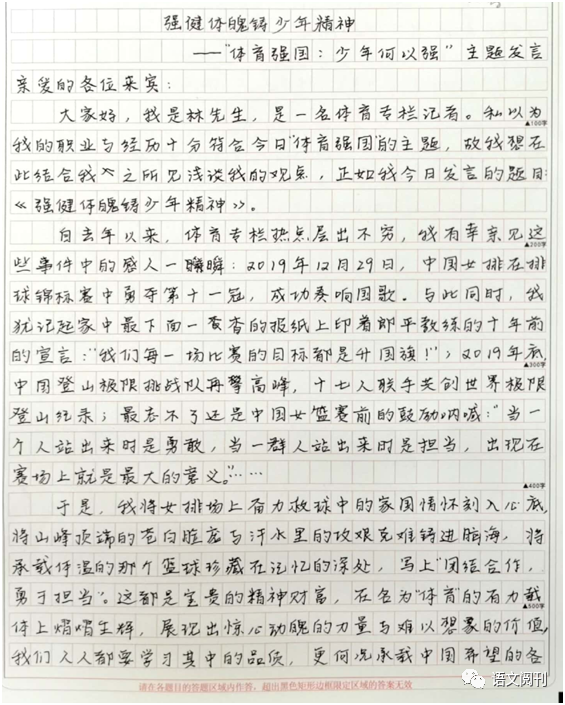 强健体魄铸少年精神
——“体育强国：少年何以强”主题发言
亲爱的各位来宾：
大家好，我是林先生，是一名体育专栏记者。私以为
▲100字
我的职业与经历十分符合今日“体育强国”的主题，故我想在
此结合我之所见浅谈我的观点，正如我今日发言的题目：
《强健体魄铸少年精神》。
自去年以来，体育专栏热点层出不穷，我有幸亲见这
▲200字
些事件中的感人一瞬：2019年12月29日，中国女排在排
球锦标赛中勇夺第十一冠，成功奏响国歌。与此同时，我
犹记起家中最下面一沓的报纸上印着郎平教练的十年前
的宣言：“我们每一场比赛的目标都是升国旗！”；2019年底，
▲300字
中国登山极限挑战队再攀高峰，十七人联手共创世界极限
登山纪录；最忘不了还是中国女篮赛前的鼓励呐喊：“当一
个人站出来时是勇敢，当一群人站出来时是担当，出现在
赛场上就是最大的意义。”……
▲400字
于是，我将女排场上奋力救球中的家国情怀刻入心底，
将山峰顶端的苍白脸庞与汗水里的攻艰克难铸进脑海，将
承载体温的那个篮球珍藏在记忆的深处，写上“团结合作，
勇于担当”。这都是宝贵的精神财富，在名为“体育”的有力载
▲500字
体上熠熠生辉，展现出惊心动魄的力量与难以想象的价值，
我们人人都要学习其中的品质，更何况承载中国希望的各
请在各题目的答题区域内作答，超出黑色矩形边框限定区域的答案无效
语文阅刊